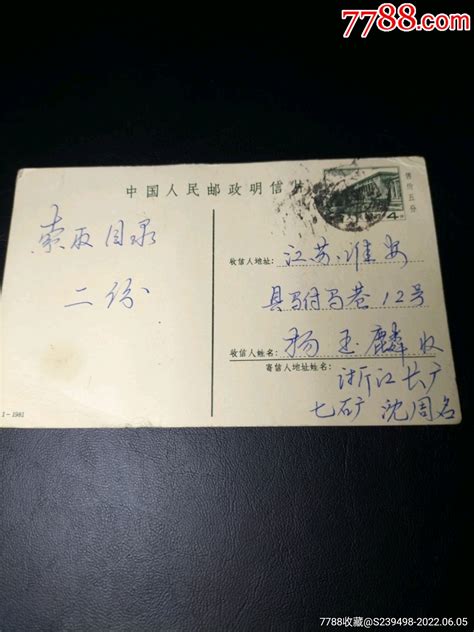 7788.com
中国人民邮政明信片
售价五分
4
索取目录
二份
收信人地址:
江苏淮安
县驸马巷12号
收信人姓名:
杨玉麟收
寄信人地址姓名:
浙江长广
七矿 沈周名
1-1981
7788收藏@S239498-2022.06.05